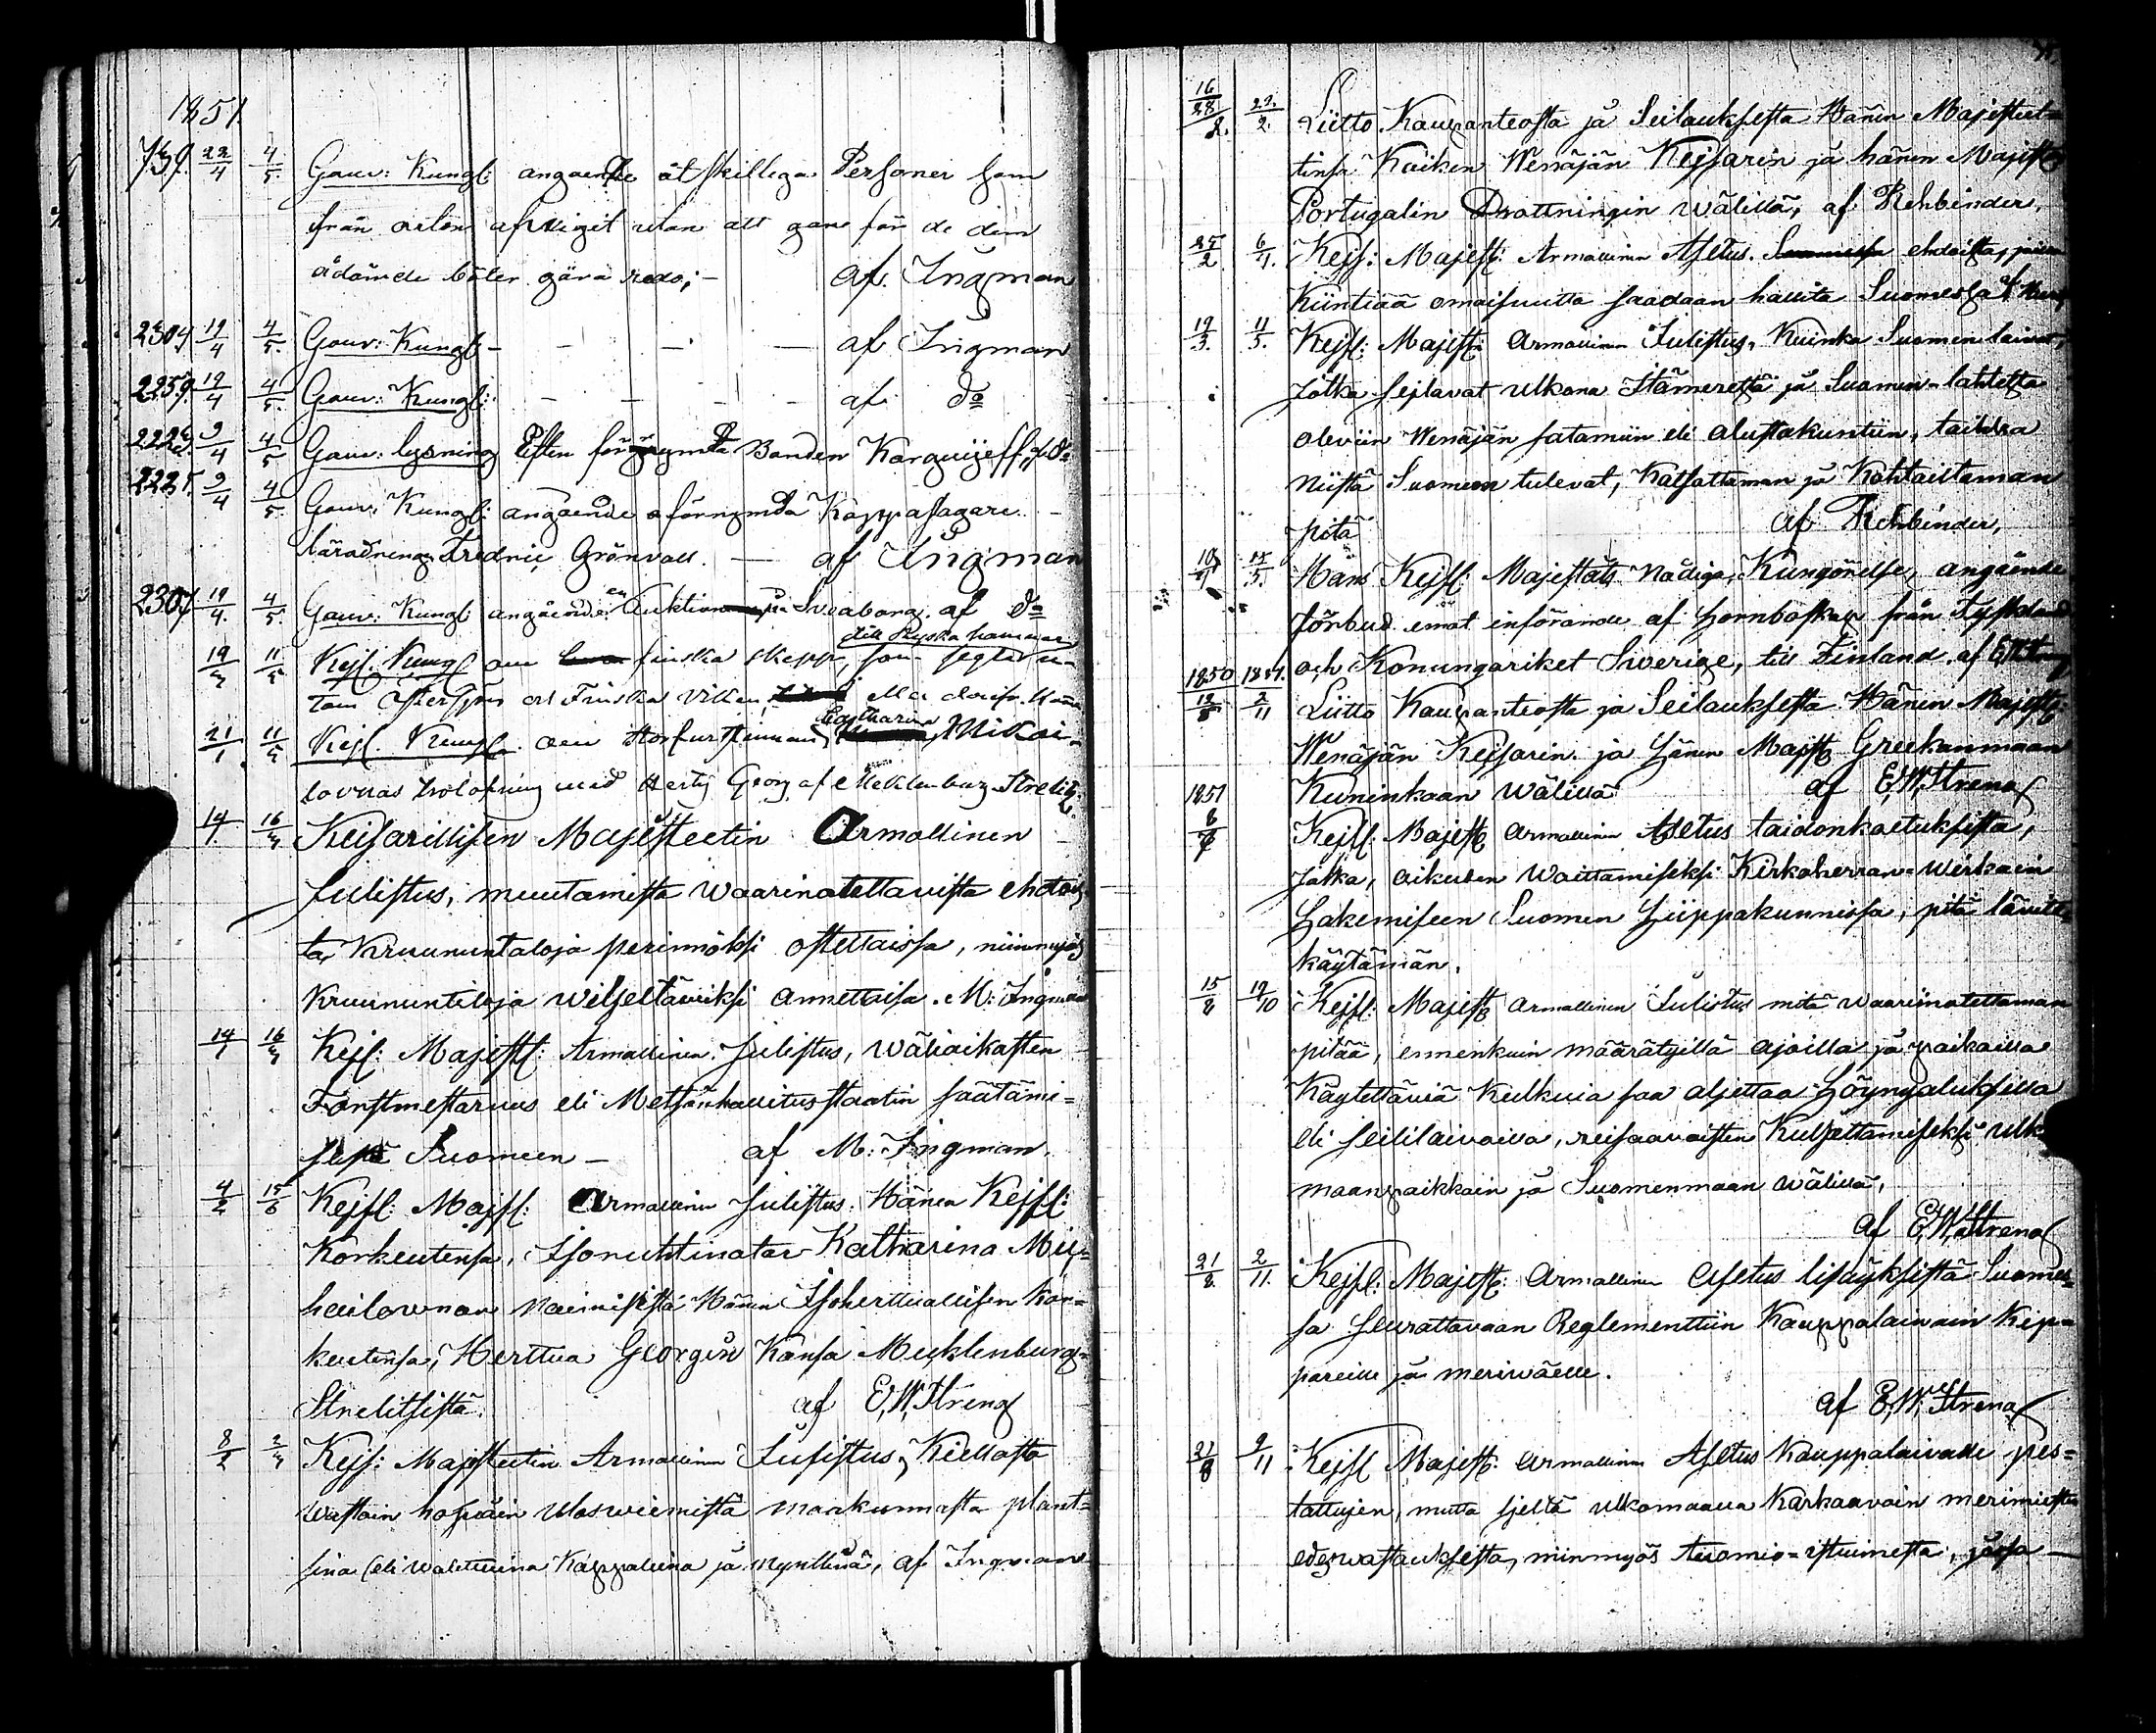 1851.
759. 22/4 4/5 Gouv: Kungl: angaende åtskillega Personer som
från orten afvigit utan att gare för de dem
ådömde böter göra redo;- af. Ingman
2304. 19/4 4/5. Gouv: Kungl - - - - af Ingman
2259. 19/4 4/5. Gouv: Kungl: - - - - af do
2226. 9/4 4/5 Gouv: lysning Efter förrymda Bonden Karguijeff, af do
2225. 9/4 4/5. Gouv: Kungl: angående aförrymda Kappasagare
Fredric Grönvall. — af Ingman
2307 19/4. 4/5. Gouv: Kungl: angående en Auktion på Sveaborg. af do
till Ryska hamnar
19/3 11/5 Kejs. Kungl om finska skepp, som segla u-
tom Östersjön och Finska Viken, eller
Catharina
21/1 11/5 Kejs. Kungl. om Storfurstinnan Mikai-
lovnas trolofning med Hertig Georg af Meklenburg-Strelitz.
14/1. 16/4 Keisarillisen Majesteetin Armollinen
Julistus, muutamista waarinotettavista ehdois
ta, Kruununtaloja perinnöksi ostettaissa, niinmyös
Kruununtiloja wiljeltäwiksi annettaisa. M: Ingman
14/1 16/4 Kejs: Majestt: Armollinen. Julistus, wäliaikaisten
Forstmestaruus eli Metsänhallitusstaatin säätämi=
sestä Suomeen — af M: Ingman.
4/2 15/6 Kejsl: Majsl: Armollinen Julistus. Hänen Kejsl:
Korkeutensa, Isoruhtinatar Katharina Mii=
hailownan naimisestä Hänen Isoherttuallisen Kor=
keutensa, Herttua Georgin Kansa Mecklenburg=
Strelitsistä. af E,W,Streng
8/2 2/4 Kejs: Majesteetin Armollinen Julistus, Kiellosta
wastoin hopiain uloswiemistä maakunnasta plant=
sina (eli walettuina Kappaleina ja myntinä, af Ingman
16/28 2. 22. 2. Liitto Kaupanteosta ja Seilauksesta Hänen Majesteet=
tinsa Kaiken Wenäjän Kejsarin ja hänen Majest:
Portugalin Drottningin wälillä, af Rehbinder.
25/2 6/4. Kejs: Majest: Armollinen Asetus. ehdoista,
Kiintiää omaisuutta saadaan hallita Suomessa
19/3. 11/5. Kejsl: Majest: Armollinen Julistus, Kuinka Suomen laivat,
jotka sejlavat ulkona Itämerestä ja Suomen-lahdesta
oleviin Wenäjän satamiin eli alustakuntiin, taikka
niistä Suomeen tulevat, Katsottaman ja Kohtailtaman
pitä af Rehbinder,
10/4 15/5. Hans Kejsl: Majestäts Nådiga, Kungörelse, angående
förbud emot införande af hornboskap från Tyskland
och Konungariket Sverige, till Finland. af
1850 12/8 1851. 2/11 Liitto Kaupanteosta ja Seilauksesta Hänen Majestt:
Wenäjän Keisarin ja Hänen Majstt Greekanmaan
Kuninkaan wälillä af E,W,Streng
1851 6/7 Kejsl: Majestt Armollinen Asetus taidonkoetuksista,
jotka, aikuden Woittamiseksi Kirkoherran=Wirkain
Hakemiseen Suomen Hiippakunnissa, pitä läwitte
käytämän.
15/8 12/10 Kejsl: Majestt Armollinen Julistus mitä waarinotettaman
pitää, ennenkuin määrätyillä ajoilla ja paikoilla
Käytettäviä Kulkuia saa aljettaa Höyryaluksilla
eli seililaivoilla, reisaavaisten Kuljettamiseksi ulko
maanpaikkain ja Suomenmaan wälillä,
af E,W,Streng
21/8. 2/11. Kejsl: Majest: Armollinen Asetus lisäyksistä Suomes=
sa seurattavaan Reglementtiin Kauppalaivain Kip=
pareille ja meriwäelle.
af E,W,Streng
21/8 9/11 Kejsl Majest: Armollinen Asetus Kauppalaivalle pes=
tattujen, mutta sieltä ulkomaalla Karkaavain merimiesten
edeswastauksesta, niinmyös tuomio=istuimesta, jossa —